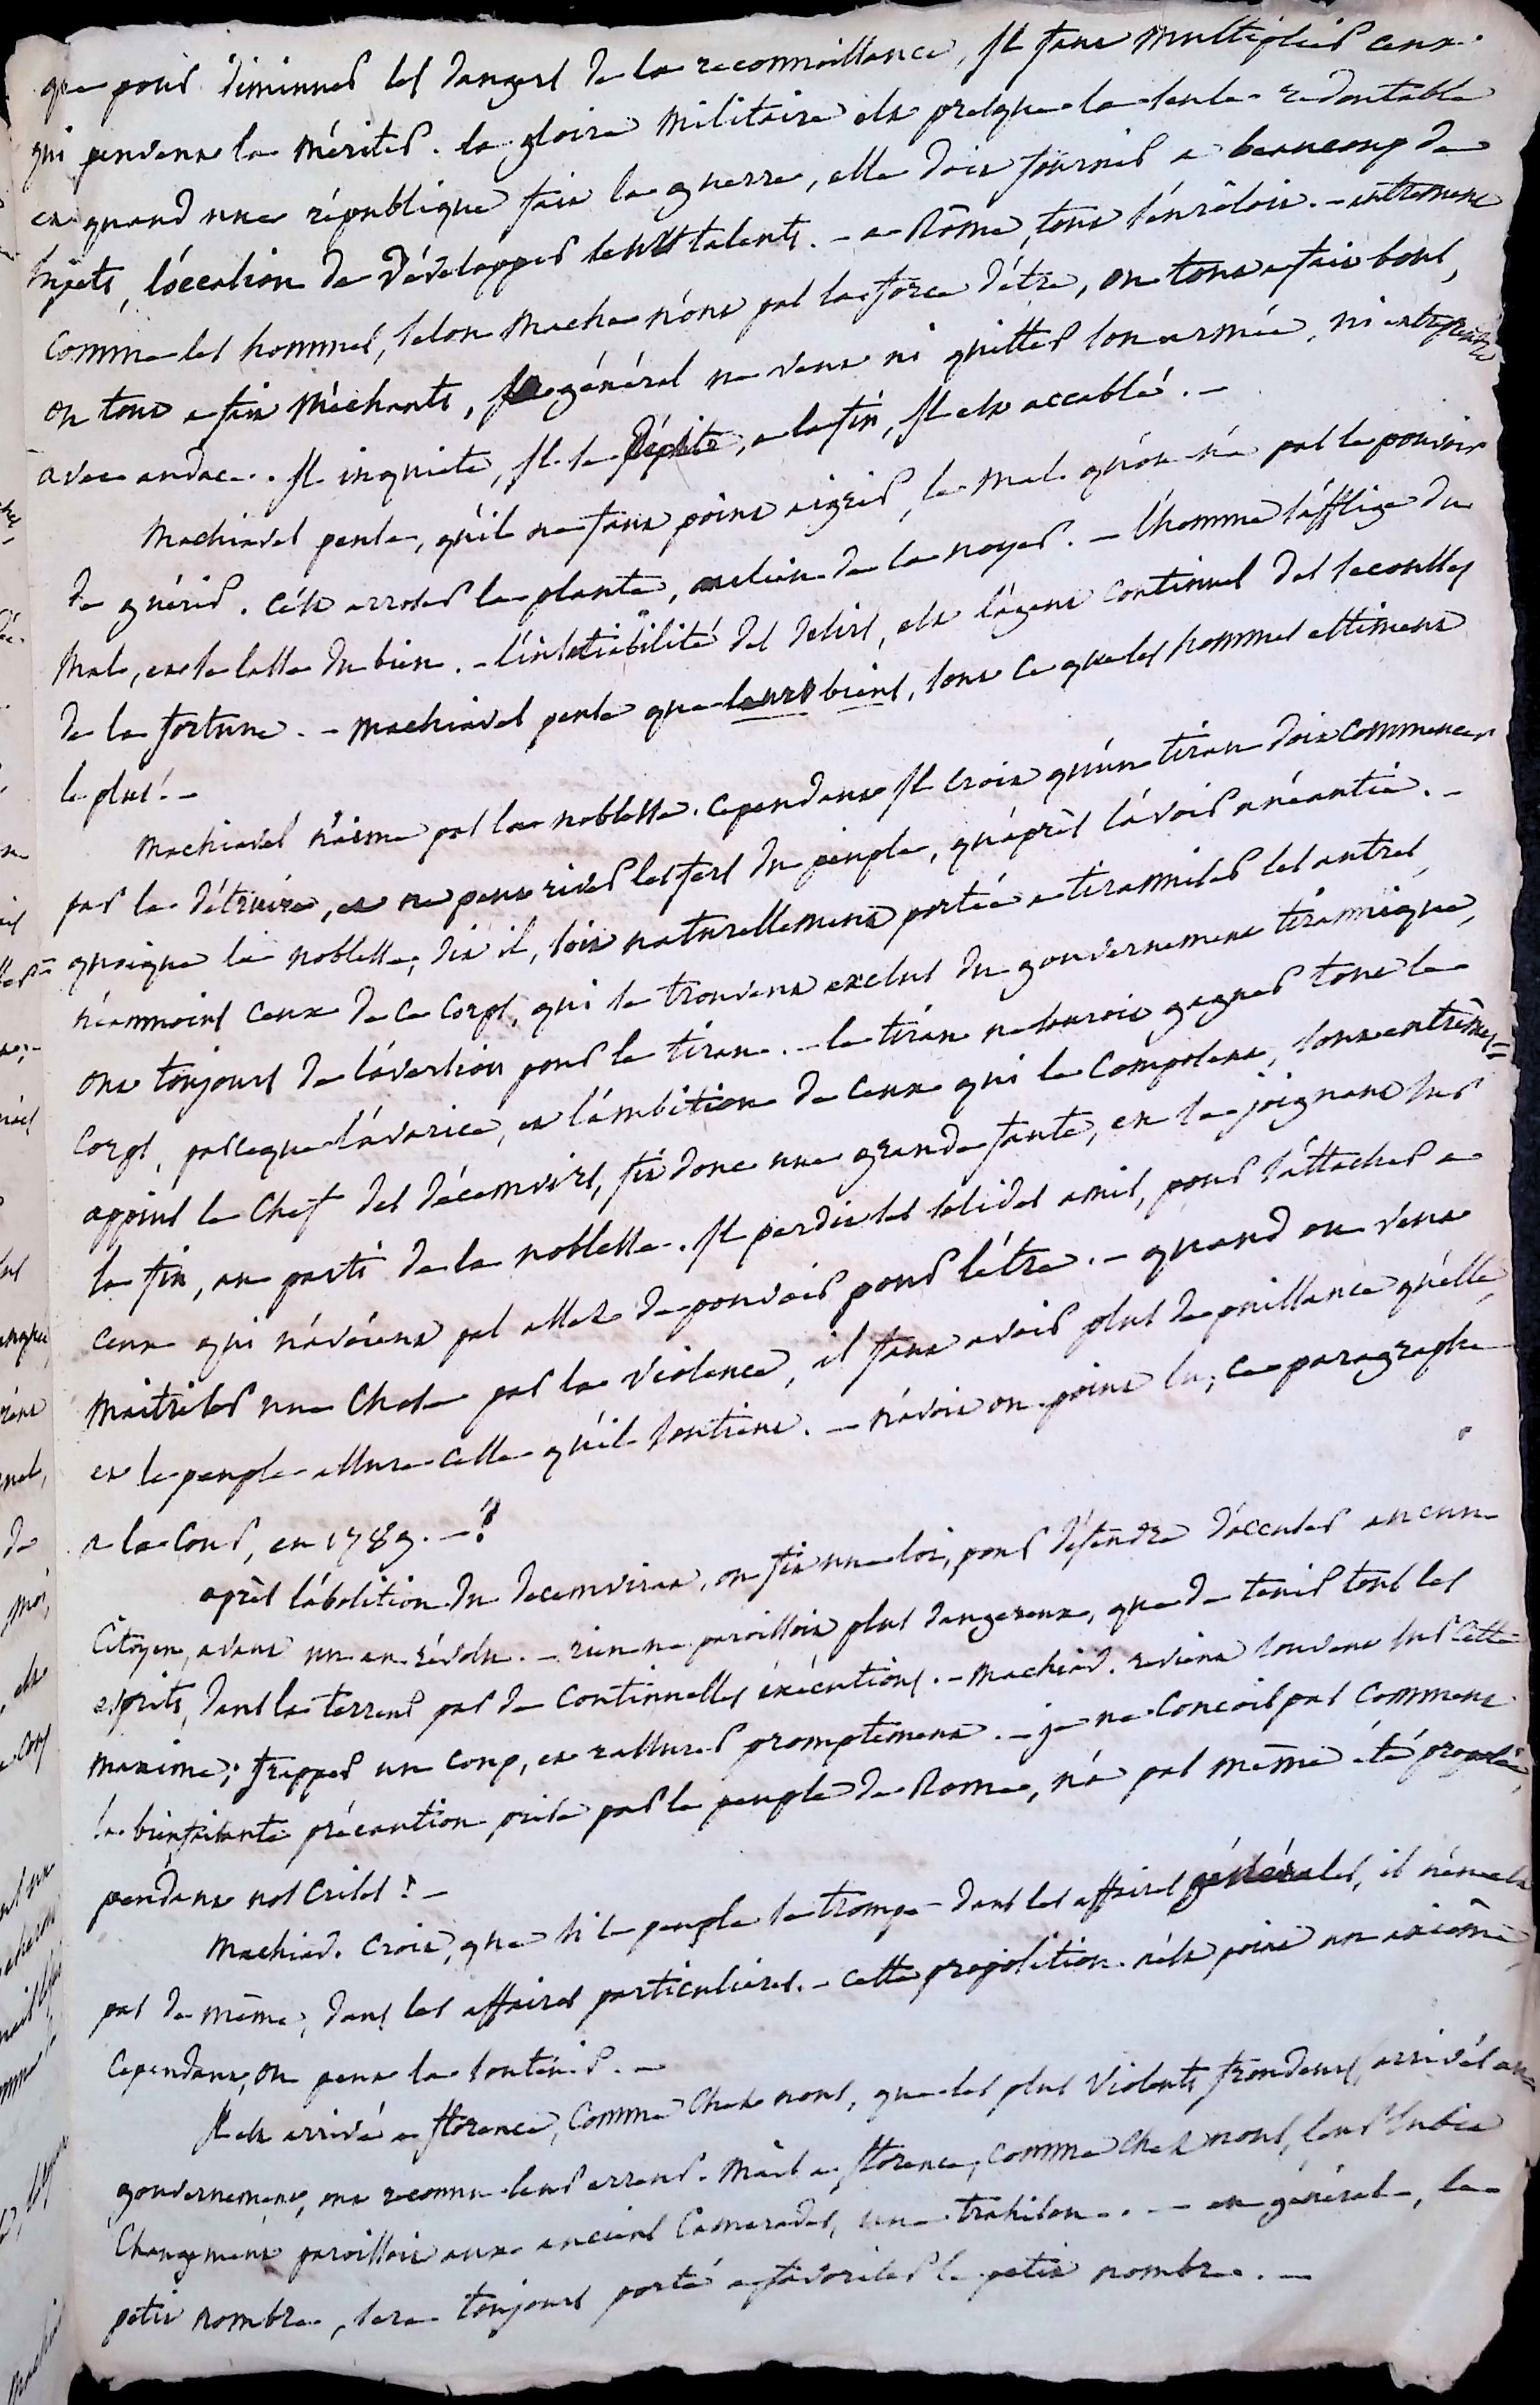 que pour diminuer les dangers de la reconnoissance, Il faut multiplier ceux
qui peuvent la mériter. la gloire militaire est presque la seule redoutable
et quand une république fait la guerre, elle doit fournir a beaucoup de
sujets, l'occasion de développer leurs talents. - a Rôme, tout s'enrôloit. - autrement
comme les hommes, selon Mache n'ont pas la force d'être, ou tout a fait bons,
ou tout a fait méchants, le général ne veut ni quitter son armée, ni entreprendre
avec audace. Il inquiete, Il se dépite, a la fin, Il est accablé. -
Machiavel pense, qu'il ne faut point aigrir, le mal qu'on n'a pas le pouvoir
de guérir. c'est arroser la plante, au lieu de la noyer. - l'homme s'afflige du
mal, et se lasse du bien. - l'insatiabilité des desirs, est l'agent continuel des secousses
de la fortune. - Machiavel pense que leurs biens, sont ce que les hommes estiment
le plus! -
Machiavel n'aime pas la noblesse. cependant Il croit qu'un tiran doit commencer
par la détruire, et ne peut river les fers du peuple, qu'après l'avoir anéantie. -
quoique la noblesse, dit il, soit naturellement portée a tiranniser les autres,
néanmoins ceux de ce corps, qui se trouvent exclus du gouvernement tirannique,
ont toujours de l'aversion pour le tiran. - le tiran ne sauroit gagner tout le
corps, parceque l'avarice, et l'ambition de ceux qui le composent, sont extrêmes =
appius le chef des décemvirs, fit donc une grande faute, en se joignant sur
la fin, au parti de la noblesse. Il perdit les solides amis, pour s'attacher a
ceux qui n'avoient pas assez de pouvoir pour l'être. - quand on veut
maitriser une chose par la violence, il faut avoir plus de puissance qu'elle,
et le peuple assure celle qu'il soutient. - n'avoit on point lu, ce paragraphe
a la cour, en 1789. - ?
après l'abolition du decemvirat, on fit une loi, pour défendre d'accuser aucun
citoyen, avant un an révolu. - rien ne paroissoit plus dangereux, que de tenir tous les
esprits, dans la terreur par de continuelles éxécutions. - Machiav. revient souvent sur cette
maxime; frapper un coup, et rassurer promptement. - je ne conçois pas comment
la bienfaisante précaution prise par le peuple de Rome, n'a pas même été proposée,
pendant nos crises! -
Machiav. croit, que si le peuple se trompe dans les affaires générales, il n'en est
pas de même, dans les affaires particulieres. - cette proposition n'est point un axiôme,
cependant, on peut la soutenir. -
Il est arrivé a florence, comme chez nous, que les plus violents frondeurs, arrivés au
gouvernement, ont reconnu leur erreur. Mais a florence, comme chez nous, leur subit
changement paroissoit aux anciens camarades, une trahison. - en général, le
petit nombre, sera toujours porté a favoriser le petit nombre. -